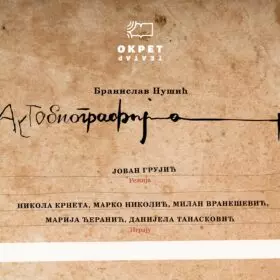 ОКРЕТ
ТЕАТАР
Бранислав Нушић
Аутобиографија
ЈОВАН ГРУЈИЋ
Режија
НИКОЛА КРНЕТА, МАРКО НИКОЛИЋ, МИЛАН ВРАНЕШЕВИЋ,
МАРИЈА ЋЕРАНИЋ, ДАНИЈЕЛА ТАНАСКОВИЋ
Играју